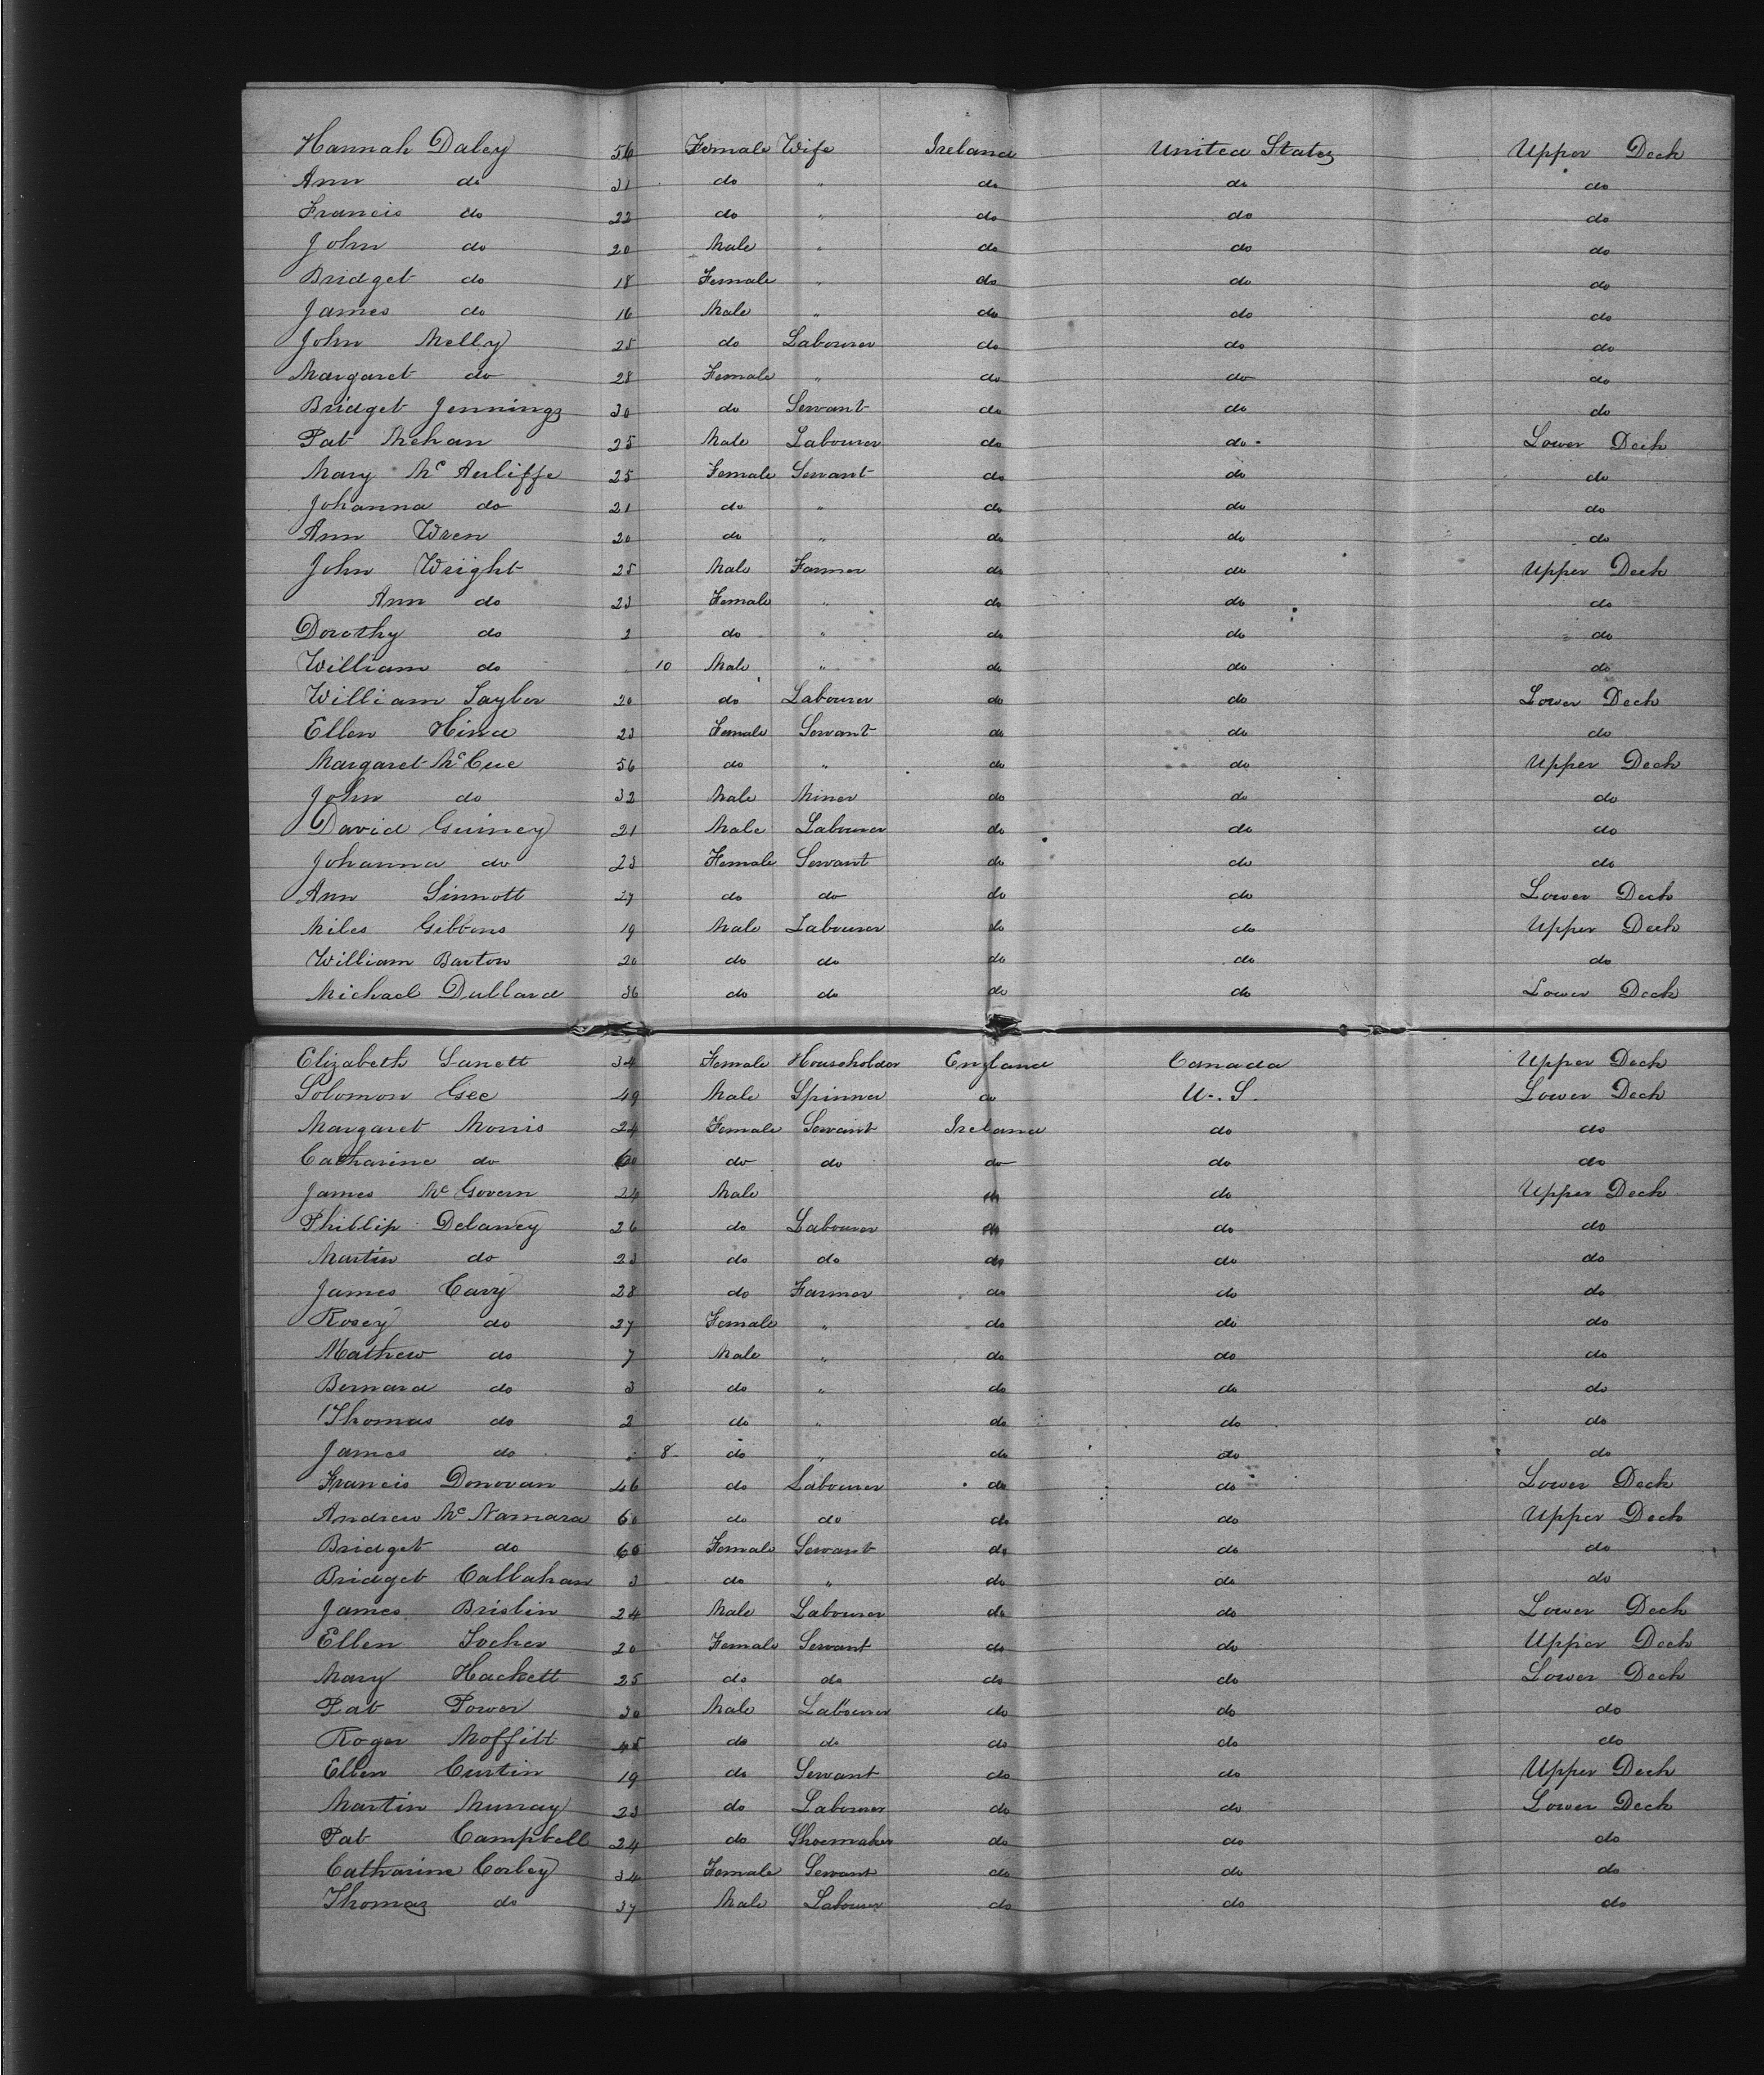 Hannah Daley 56 Female Wife Ireland United States Upper Deck
Ann do 31 do " do do do
Francis do 22 do " do do do
John do 20 Male " do do do
Bridget do 18 Female " do do do
James do 16 Male " do do do
John Melly 25 do Labourer do do do
Margaret do 28 Female " do do do
Bridget Jennings 30 do Servant do do do
Pat Mehan 25 Male Labourer do do Lower Deck
Mary Mc Auliffe 25 Female Servant do do do
Johanna do 21 do " do do do
Ann Wren 20 do " do do do
John Wright 25 Male Farmer do do Upper Deck
Ann do 23 Female " do do do
Dorothy do 2 do " do do do
William do 10 Male " do do do
William Taylor 20 do Labourer do do Lower Deck
Ellen Hind 23 Female Servant do do do
Margaret Mc Cue 56 do " do do Upper Deck
John do 32 Male Miner do do do
David Guiney 21 Male Labourer do do do
Johanna do 23 Female Servant do do do
Ann Sinnott 27 do do do do Lower Deck
Miles Gibbons 19 Male Labourer do do Upper Deck
William Barton 20 do do do do do
Michael Dullard 36 do do do do Lower Deck
Elizabeth 34 Female Householder England Canada Upper Deck
Solomon Gee 49 Male Spinner do U.S. Lower Deck
Margaret Morris 24 Female Servant Ireland do do
Catharine do 60 do do do do do
James Mc Govern 24 Male do do Upper Deck
Phillip Delaney 26 do Labourer do do do
Martin do 23 do do do do do
James Cary 28 do Farmer do do do
Rosey do 27 Female " do do do
Mathew do 7 Male " do do do
Bernard do 3 do " do do do
Thomas do 2 do " do do do
James do 8 do " do do do
Francis Donovan 46 do Labourer do do Lower Deck
Andrew Mc Namara 60 do do do do Upper Deck
Bridget do 60 Female Servant do do do
Bridget Callahan 3 do " do do do
James Brislin 24 Male Labourer do do Lower Deck
Ellen 20 Female Servant do do Upper Deck
Mary Hackett 25 do do do do Lower Deck
Pat Power 30 Male Labourer do do do
Roger Moffitt 45 do do do do do
Ellen Curtin 19 do Servant do do Upper Deck
Martin Murray 23 do Labourer do do Lower Deck
Pat Campbell 24 do Shoemaker do do do
Catharine Corley 34 Female Servant do do do
Thomas do 37 Male Labourer do do do